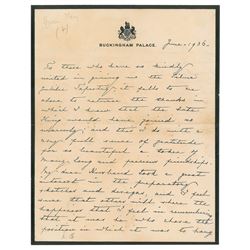 BUCKINGHAM PALACE.
June - 1936 -
To those who have so kindly
united in giving me the Palace
Jubilee Tapestry, it falls to me
alone to return the thanks in
which I know that the late
King would have joined so
warmly, and this I do with a
very full sense of gratitude
for so beautiful a token of
many long and precious friendships.
My dear Husband took a great
interest in the preparatory
sketches and designs, and I feel
sure that others will share the
happiness that I feel in remembering
that it was he who chose the
position in which it was to hang